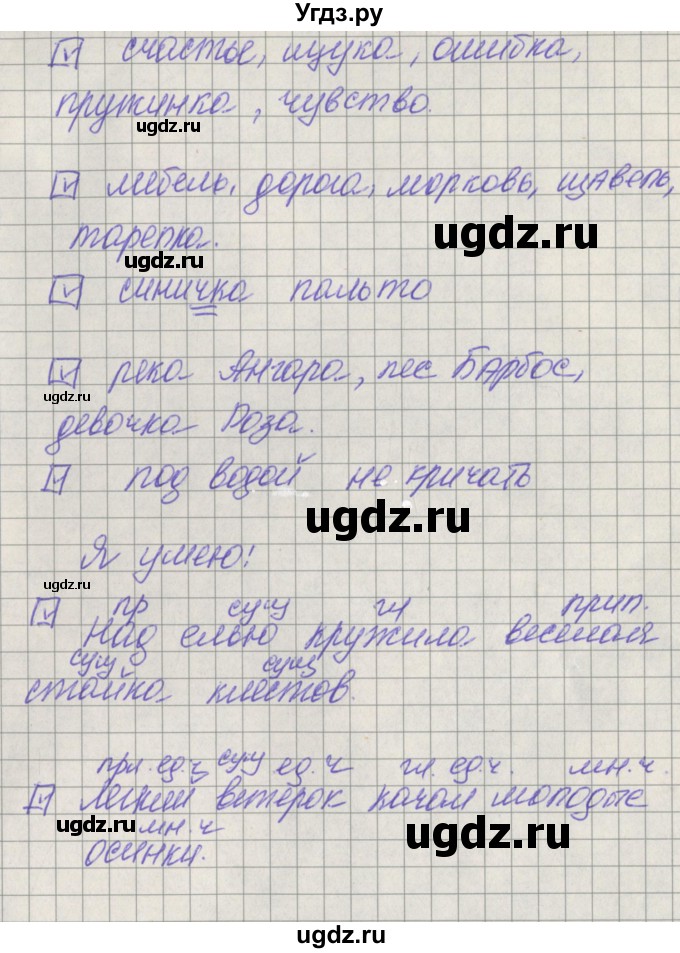 Угдз.ру
☑ счастье, щука, ошибка,
пружинка, чувство.
ugdz.ru
☑ мебель, дорога, морковь, щавель,
ugdz.ru
тарелка.
ugdz.ru
☑ синичка пальто
ugdz.ru
☑ река Ангара, пес Барбос,
девочка Роза.
☑ под водой не кричать
ugdz.ru
Я умею!
ugdz.ru
пр сущ гл прил.
☑ Над елью кружила веселая
сущ сущ
стайка клестов.
прл. ед.ч сущ ед.ч гл. ед.ч. мн.ч.
☑ Легкий ветерок качал молодые
ugdz.ru мн.ч ugdz.ru
осинки.
ugdz.ru